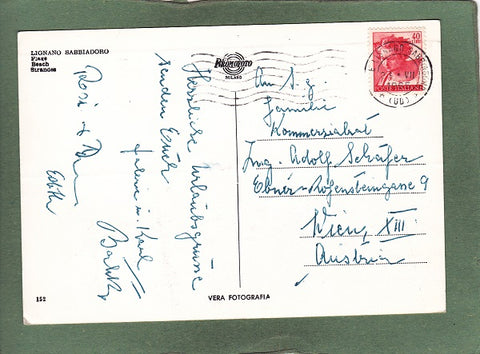 LIGNANO SABBIADORO
Piage
Beach
Strandes
MILANO
40
(UD)
Herzliche Urlaubsgrüsse
senden Euch
u. Karl
Rosi
Edith
An S. g.
Familie
Kommerzialrat
Ing. Adolf Schäfer
Ebner-Rofensteingasse 9
Wien, XIII
Austria
152
VERA FOTOGRAFIA